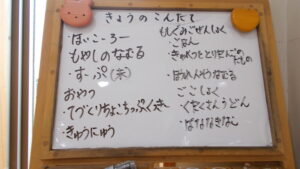 きょうのこんだて
・ほいこーろー
もやしのなむる
・すーぷ(米)
おやつ
・てづくりちょこちっぷくっきー
・きゅうにゅう
もぐみごぜんしょく
・ごはん
・きゃべつととりだんごのにもの
・ほうれんそうなむる
ごごしょく
・くたくさんうどん
・ばななきなこ